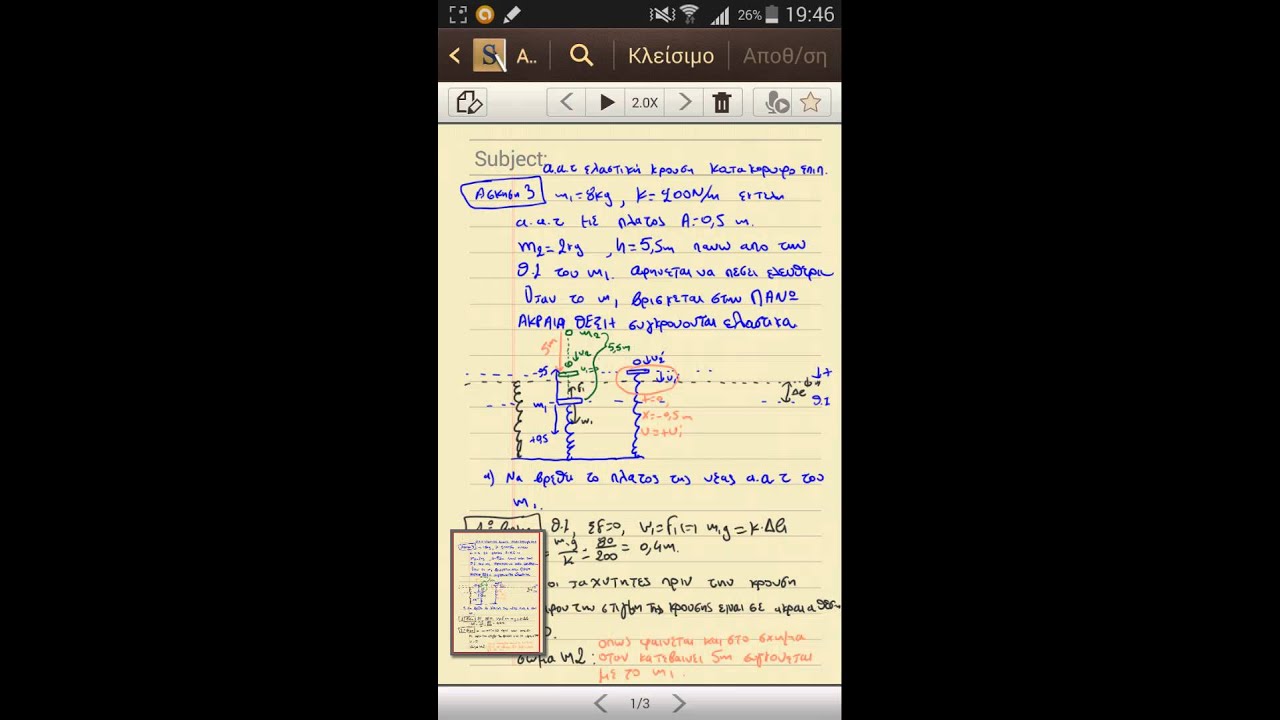 26% 19:46
S A.. Κλείσιμο Αποθ/ση
2.0X
Subject:
α.α.τ ελαστική κρουση κατακορυφο επιπ.
Ασκηση 3 m₁=8kg, K=200N/m εκτελει
α.α.τ με πλατος A=0,5 m.
m₂=2kg, h=5,5m πανω απο την
θ.Ι του m₁. αφηνεται να πεσει ελευθερα
Οταν το m₁ βρισκεται στην ΠΑΝΩ
ΑΚΡΑΙΑ ΘΕΣΗ συγκρουονται ελαστικα
m₂
5m υ₂ 5,5m υ₂'
-95 υ₁=0 υ₁' +
F₁ Δℓ
m₁ t=0, θ.Ι
W₁ x=-0,5m
+95 υ=+υ₁'
α) Να βρεθει το πλατος της νεας α.α.τ του
m₁.
θ.Ι, Σf=0, w₁=f₁=> m₁g=K·Δℓ₁
= m₁g/K = 80/200 = 0,4m.
οι ταχυτητες πριν την κρουση
την στιγμη της κρουσης ειναι σε ακραια θεση
0.
σωμα m2: οπως φαινεται και στο σχημα
οταν κατεβαινει 5m συγκρουεται
με το m₁.
1/3